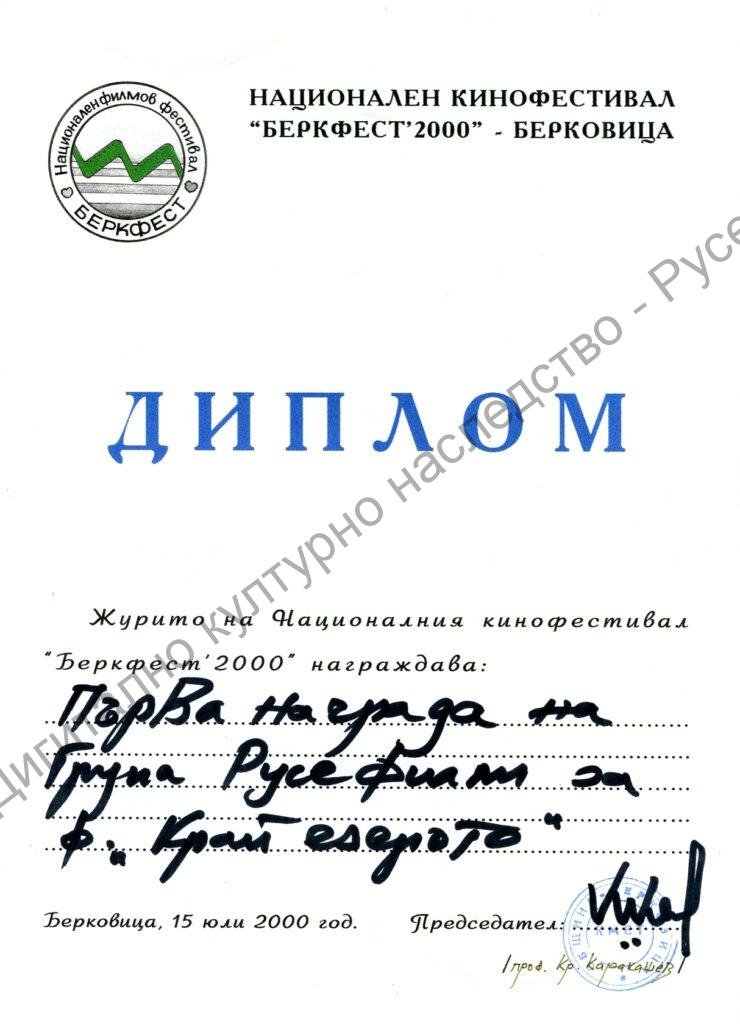 Национален филмов фестивал
БЕРКФЕСТ
НАЦИОНАЛЕН КИНОФЕСТИВАЛ
“БЕРКФЕСТ'2000” - БЕРКОВИЦА
ДИПЛОМ
Журито на Националния кинофестивал
“Беркфест'2000” награждава:
Първа награда на
Група Русефилм за
ф. „Край езерото“
Берковица, 15 юли 2000 год. Председател:
/проф. Кр. Каракашев/
Дигитално културно наследство - Русе